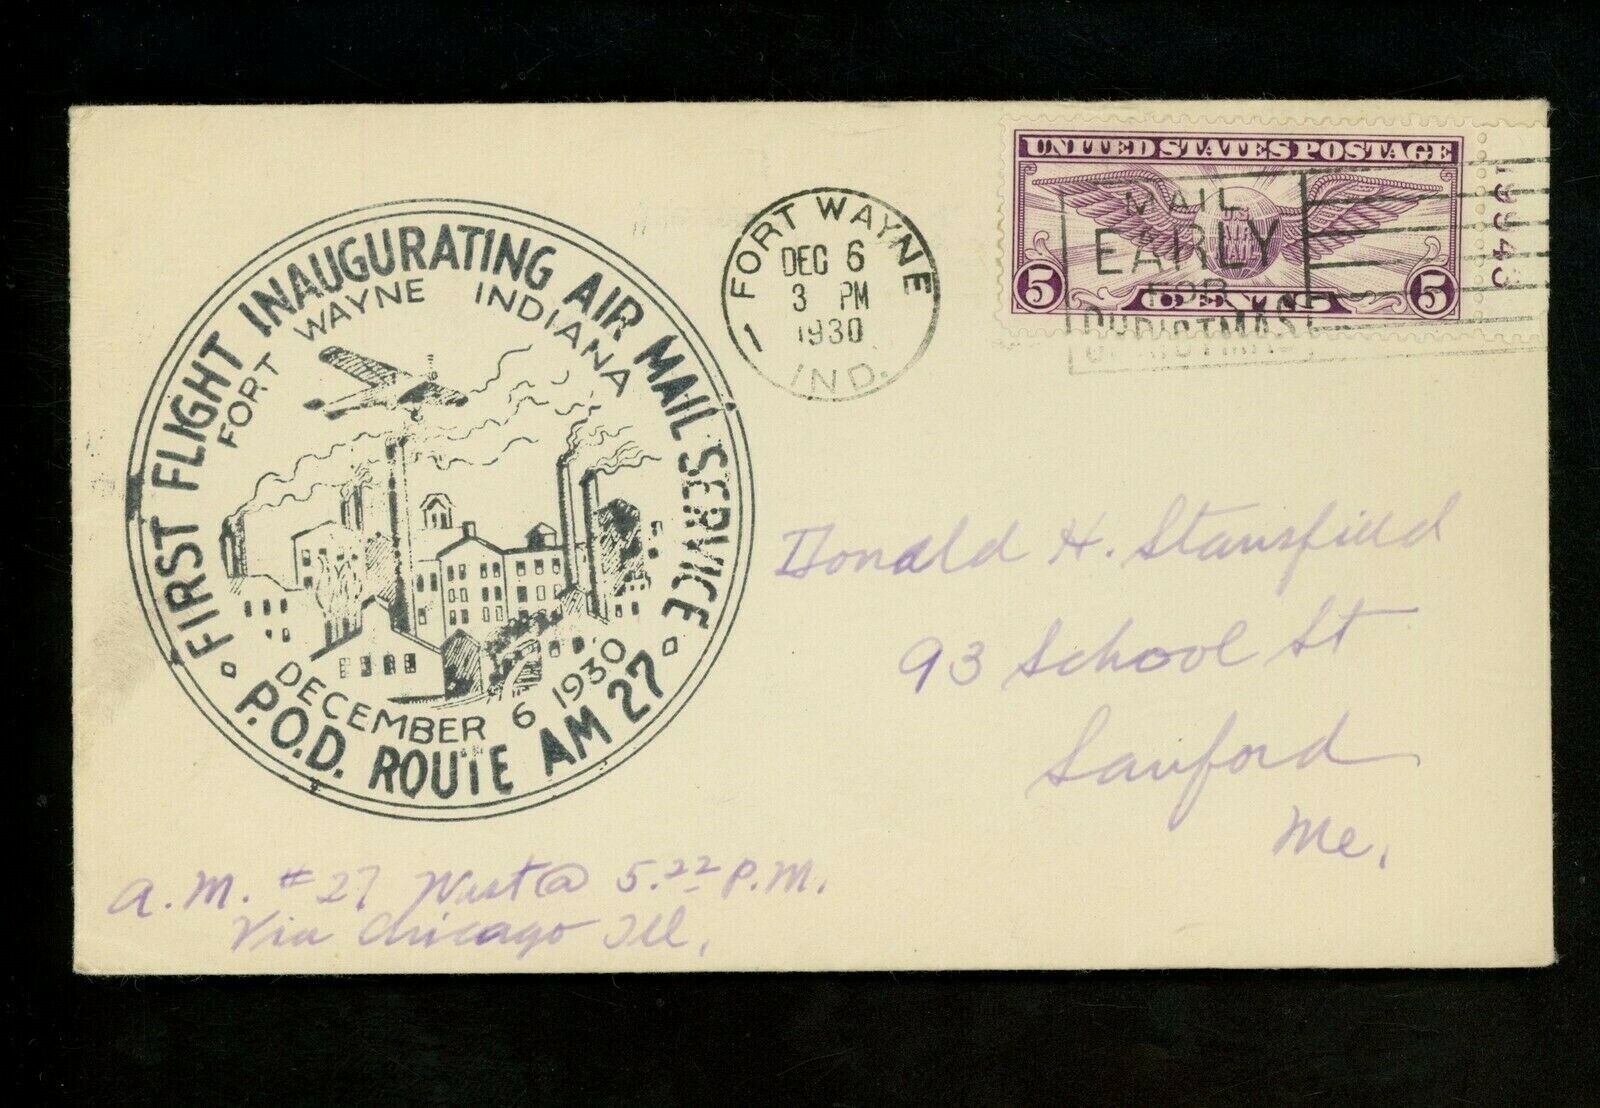 FIRST FLIGHT INAUGURATING AIR MAIL SERVICE
FORT WAYNE INDIANA
DECEMBER 6 1930
P.O.D. ROUTE AM 27
FORT WAYNE
DEC 6
3 PM
1930
IND.
1
UNITED STATES POSTAGE
U.S.
AIR
MAIL
5 CENTS 5
19943
MAIL
EARLY
FOR
CHRISTMAS
Donald H. Stansfield
93 School St
Sanford
Me.
A.M. #27 West @ 5.22 P.M.
Via Chicago Ill.